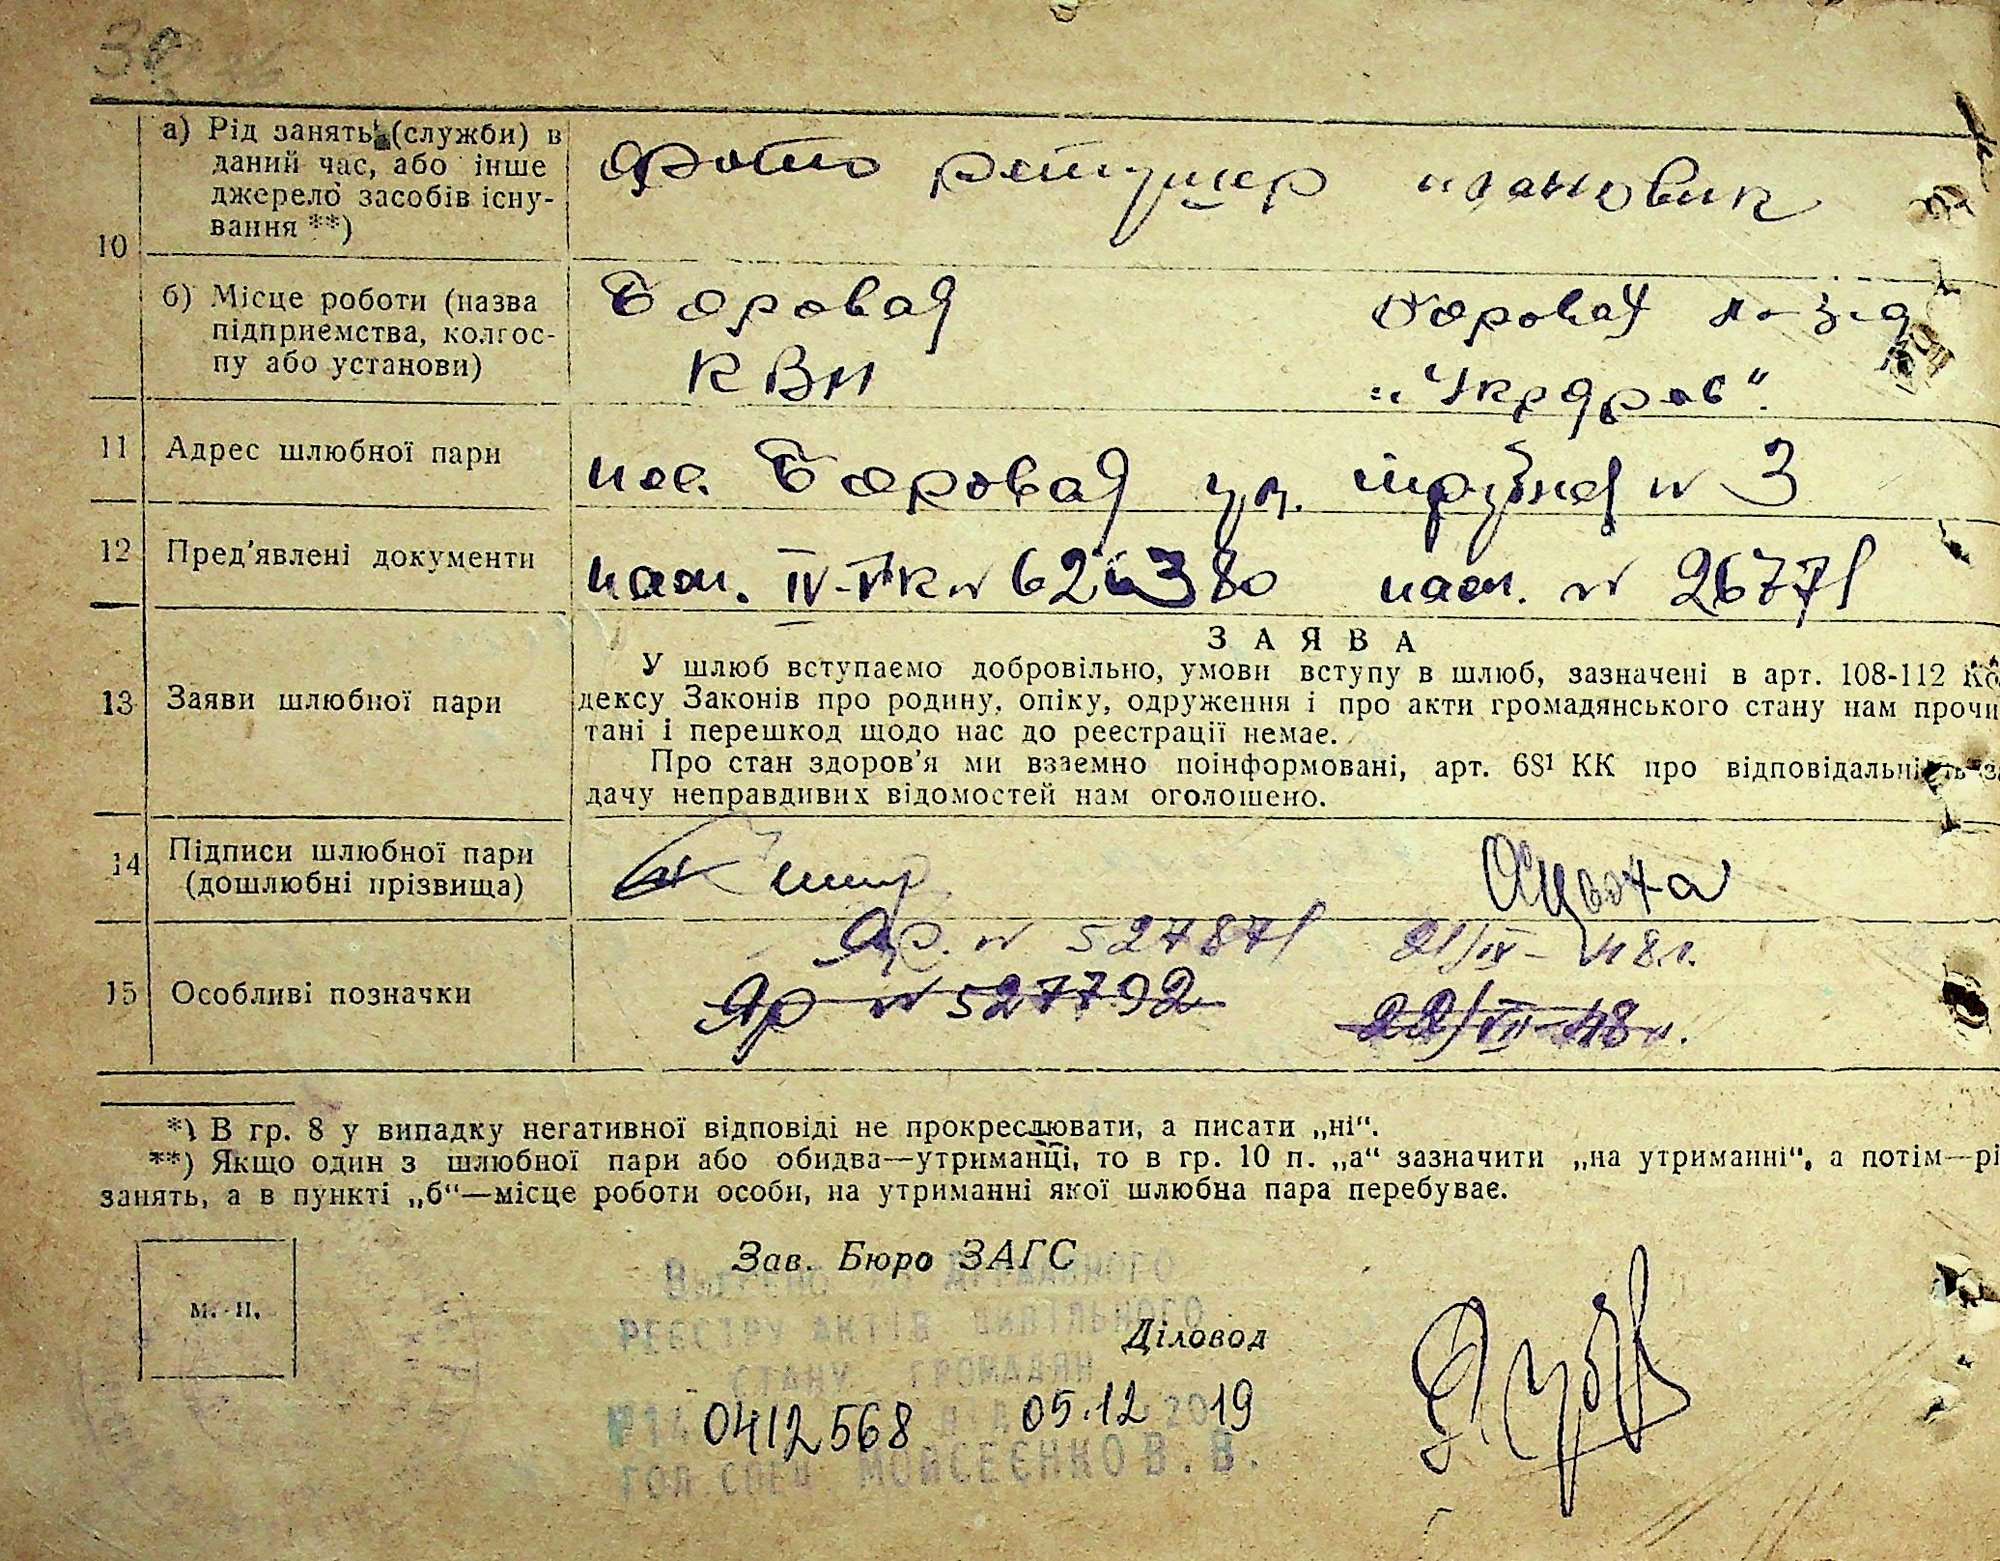 10
а) Рід занять (служби) в
даний час, або інше
джерело засобів існу-
вання **)
фото ретушер плановик
б) Місце роботи (назва
підприємства, колгос-
пу або установи)
Боровая
Боровая
"Укр
11 Адрес шлюбної пари
пос. Боровая ул. № 3
12 Пред'явлені документи
пасп. № 26771
13 Заяви шлюбної пари
ЗАЯВА
У шлюб вступаємо добровільно, умови вступу в шлюб, зазначені в арт. 108-112 Ко
дексу Законів про родину, опіку, одруження і про акти громадянського стану нам прочи
тані і перешкод щодо нас до реєстрації немає.
Про стан здоров'я ми взаємно поінформовані, арт. 68¹ КК про відповідальність за
дачу неправдивих відомостей нам оголошено.
14 Підписи шлюбної пари
(дошлюбні прізвища)
15 Особливі позначки
Яр. № 527871 21/IV-48г.
Яр № 527792 22/VII-48г.
*) В гр. 8 у випадку негативної відповіді не прокреслювати, а писати „ні“.
**) Якщо один з шлюбної пари або обидва—утриманці, то в гр. 10 п. „а“ зазначити „на утриманні“, а потім—рі
занять, а в пункті „б“—місце роботи особи, на утриманні якої шлюбна пара перебуває.
м. п.
Зав. Бюро ЗАГС
ДЕРЖАВНОГО
РЕЄСТРУ АКТІВ ЦИВІЛЬНОГО
Діловод
СТАНУ ГРОМАДЯН
0412568 05.12 2019
ГОЛ.СПЕЦ. МОЙСЕЄНКО В. В.